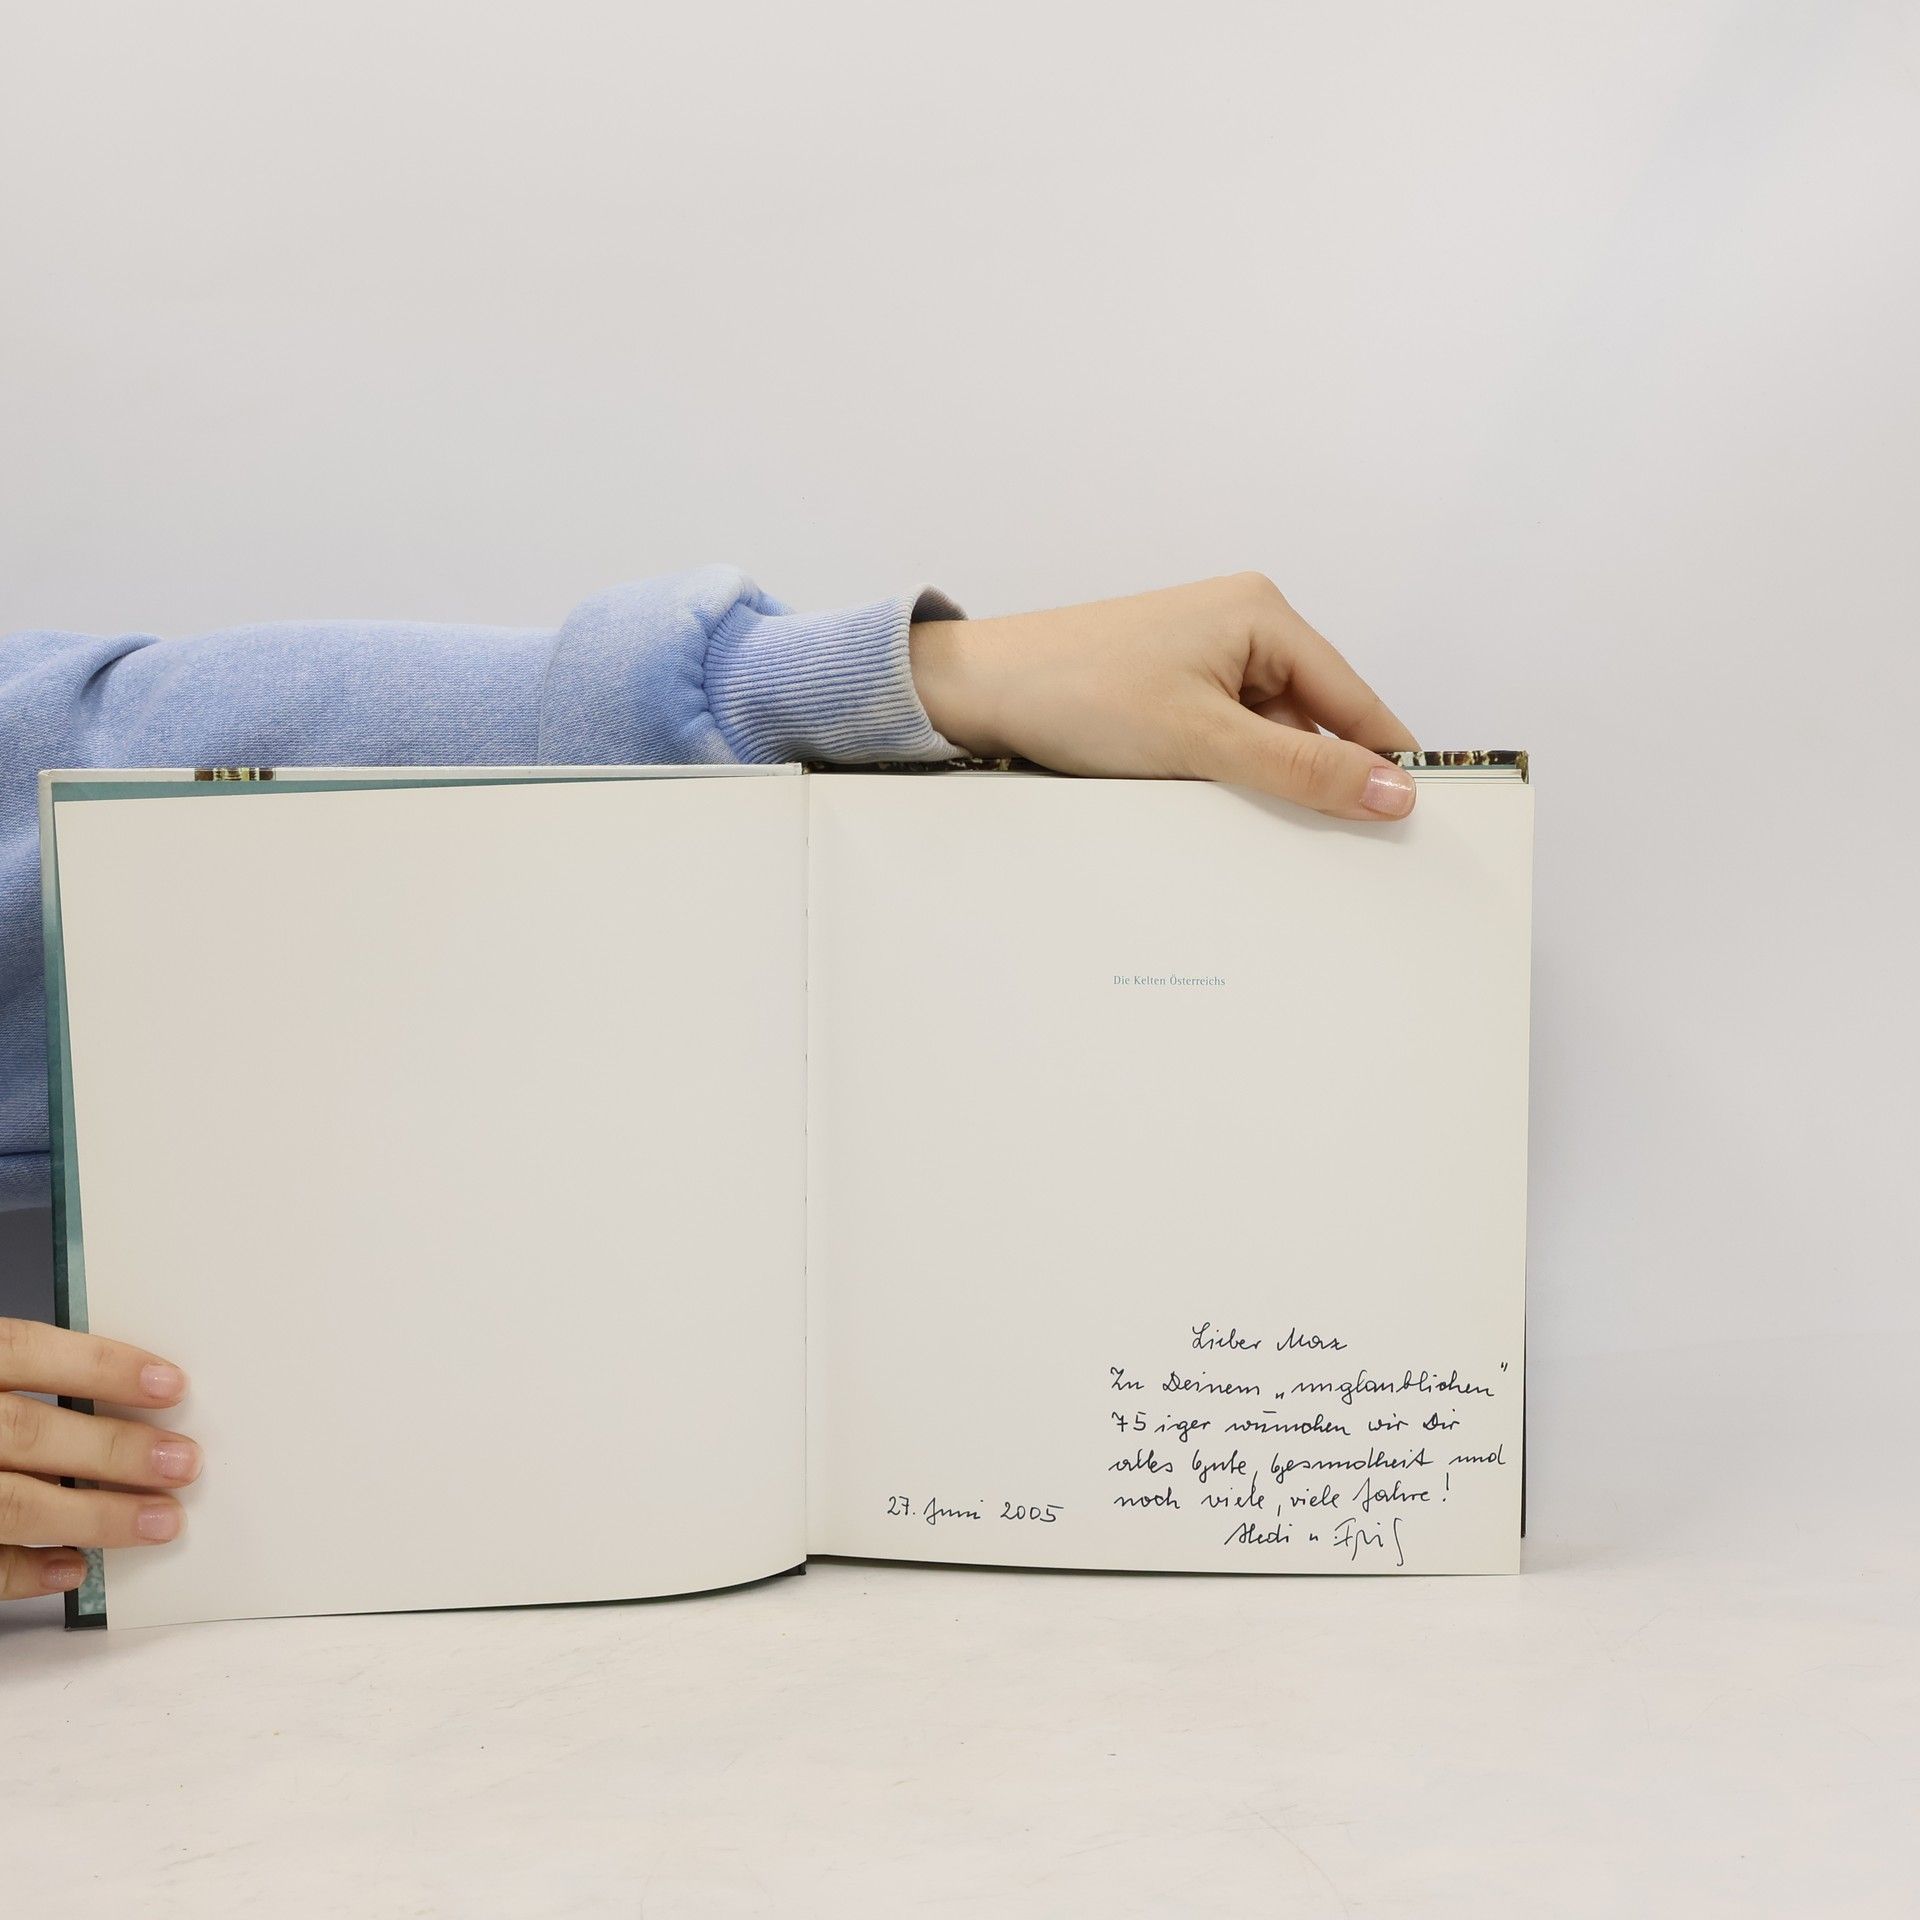 Die Kelten Österreichs
Lieber Max
Zu Deinem „unglaublichen"
75iger wünschen wir Dir
alles Gute, Gesundheit und
noch viele, viele Jahre!
27. Juni 2005
Hedi u